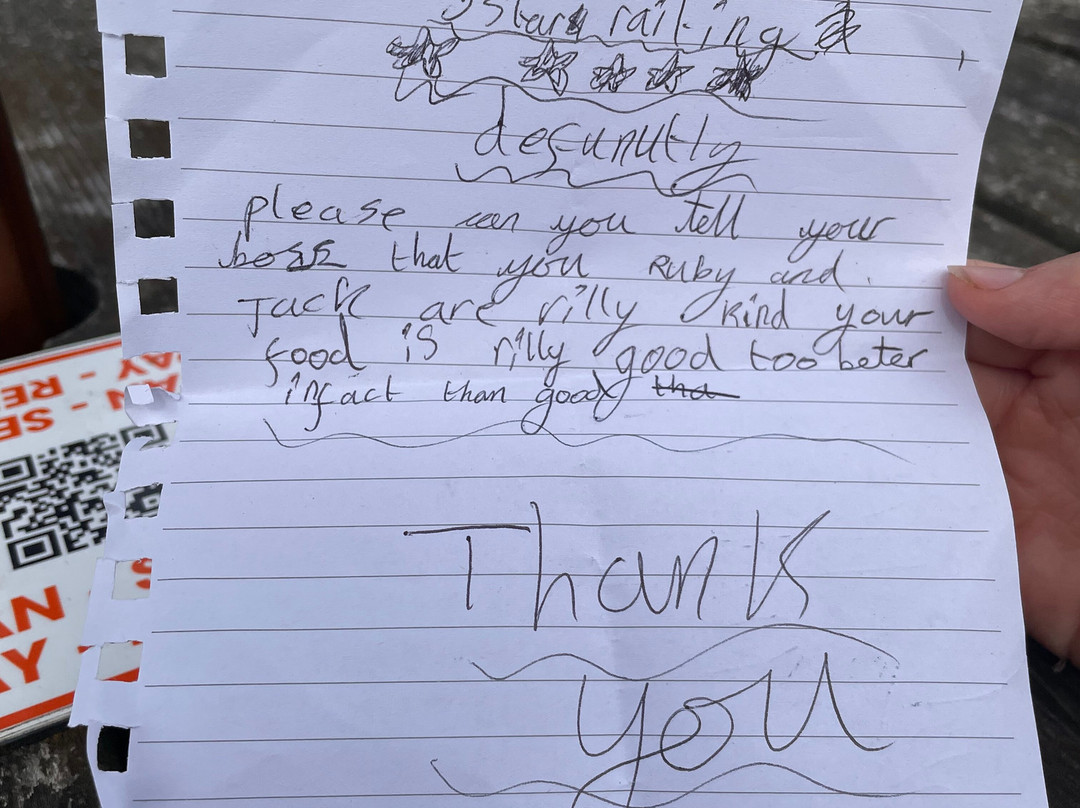 5 Star raiting
desunutly
please can you tell your
boss that you Ruby and
Jack are rilly kind your
food is rilly good too beter
infact than good tha
Thank
you